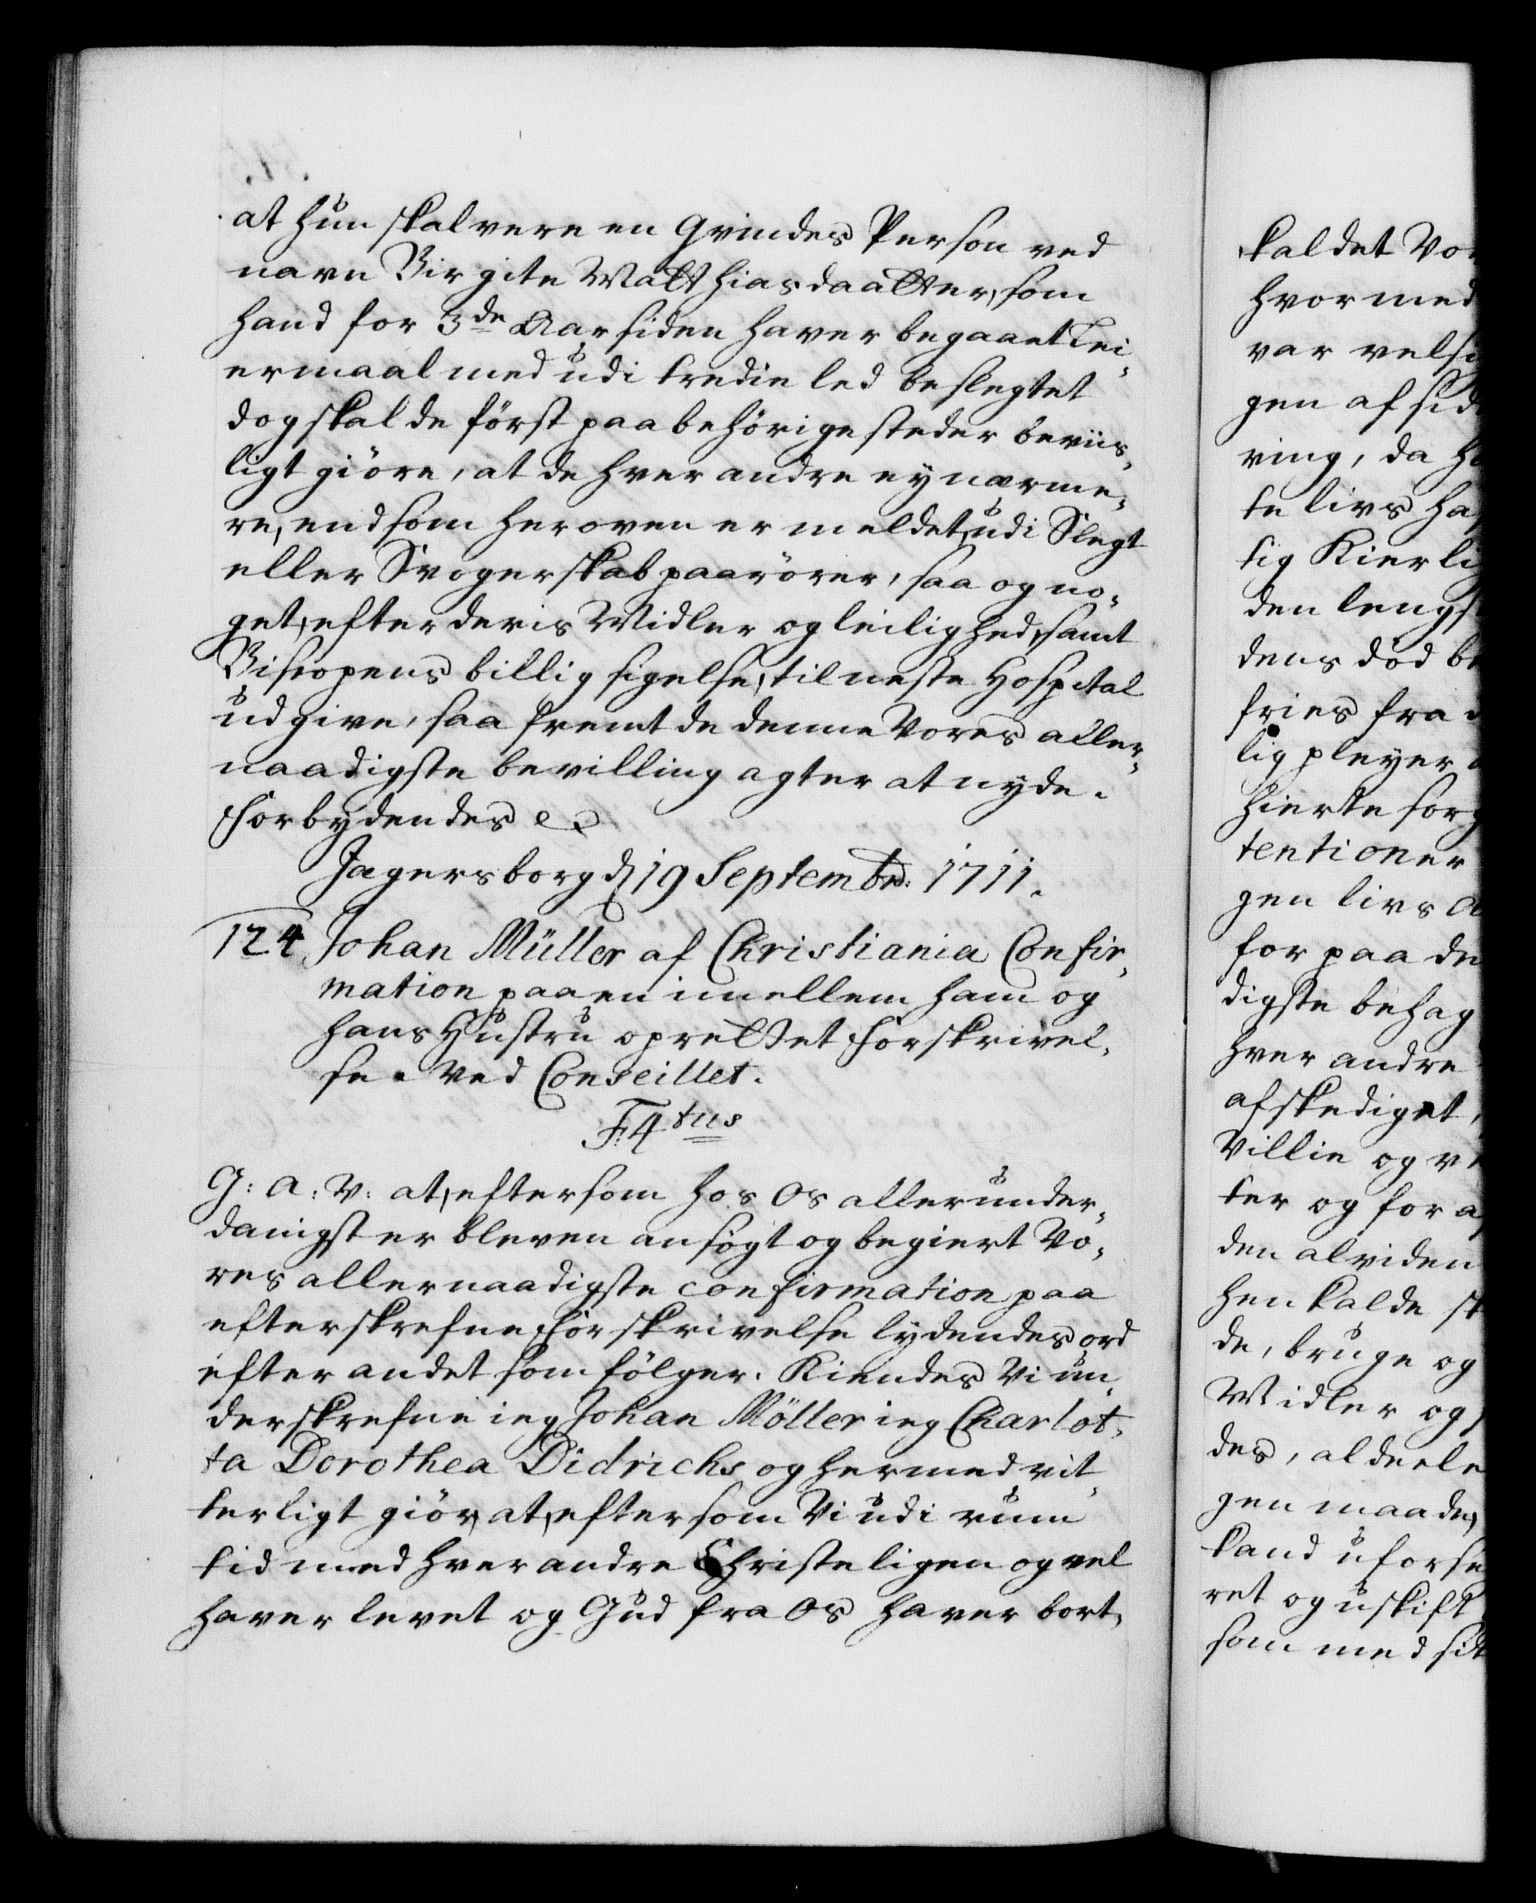 at hun skal være en Qvindes Person ved
navn Birgite Matthiasdaatter, som
hand for 3de Aar siden haver begaaet Lei-
ermaal med udi tredie led beslegtet
dog skal de först paa behörige steder beviis-
ligt giöre, at de hver andre ey nærme-
re, end som her oven er meldet, udi Slegt
eller Svogerskab paarörer, saa og no-
get, efter deris Midler og leilighed, samt
Biscopens billig sigelse, til neste Hospital
udgive, saa fremt de denne Vores aller-
naadigste bevilling agter at nyde.
Forbydendes &c
Jagersborg d 19 Septembr: 1711.
124. Johan Müller af Christiania Confir-
mation paa en imellem ham og
hans Hustru oprettet Forskrivel-
se. Ved Conseillet.
F. 4tus
G: A: V: at, eftersom hos Os allerunder-
danigst er bleven ansögt og begiert Vo-
res allernaadigste confirmation paa
efterskrefne Forskrivelse lydendes ord
efter andet som fölger. Kiendes Vi un-
derskrefne ieg Johan Möller ieg Charlot-
ta Dorothea Didrichs og hermed vit-
terligt giör, at, eftersom Vi udi rum
tid med hver andre Christeligen og vel
haver levet og Gud fra Os haver bort-
kaldet Vor
hvormed
var velsi
gen af sid
ring, da
te livs
tig Kierli
den lengs
dens död
fries fra
lig pleyer
hierte sorg
tentioner
gen livs
for paa de
digste behag
hver andre
afskediget,
Villie og
ter og for
den alviden
hen kalde
de, bruge og
Midler og
des, aldeele
gen maade,
kand uforse
ret og uskift
som med sid